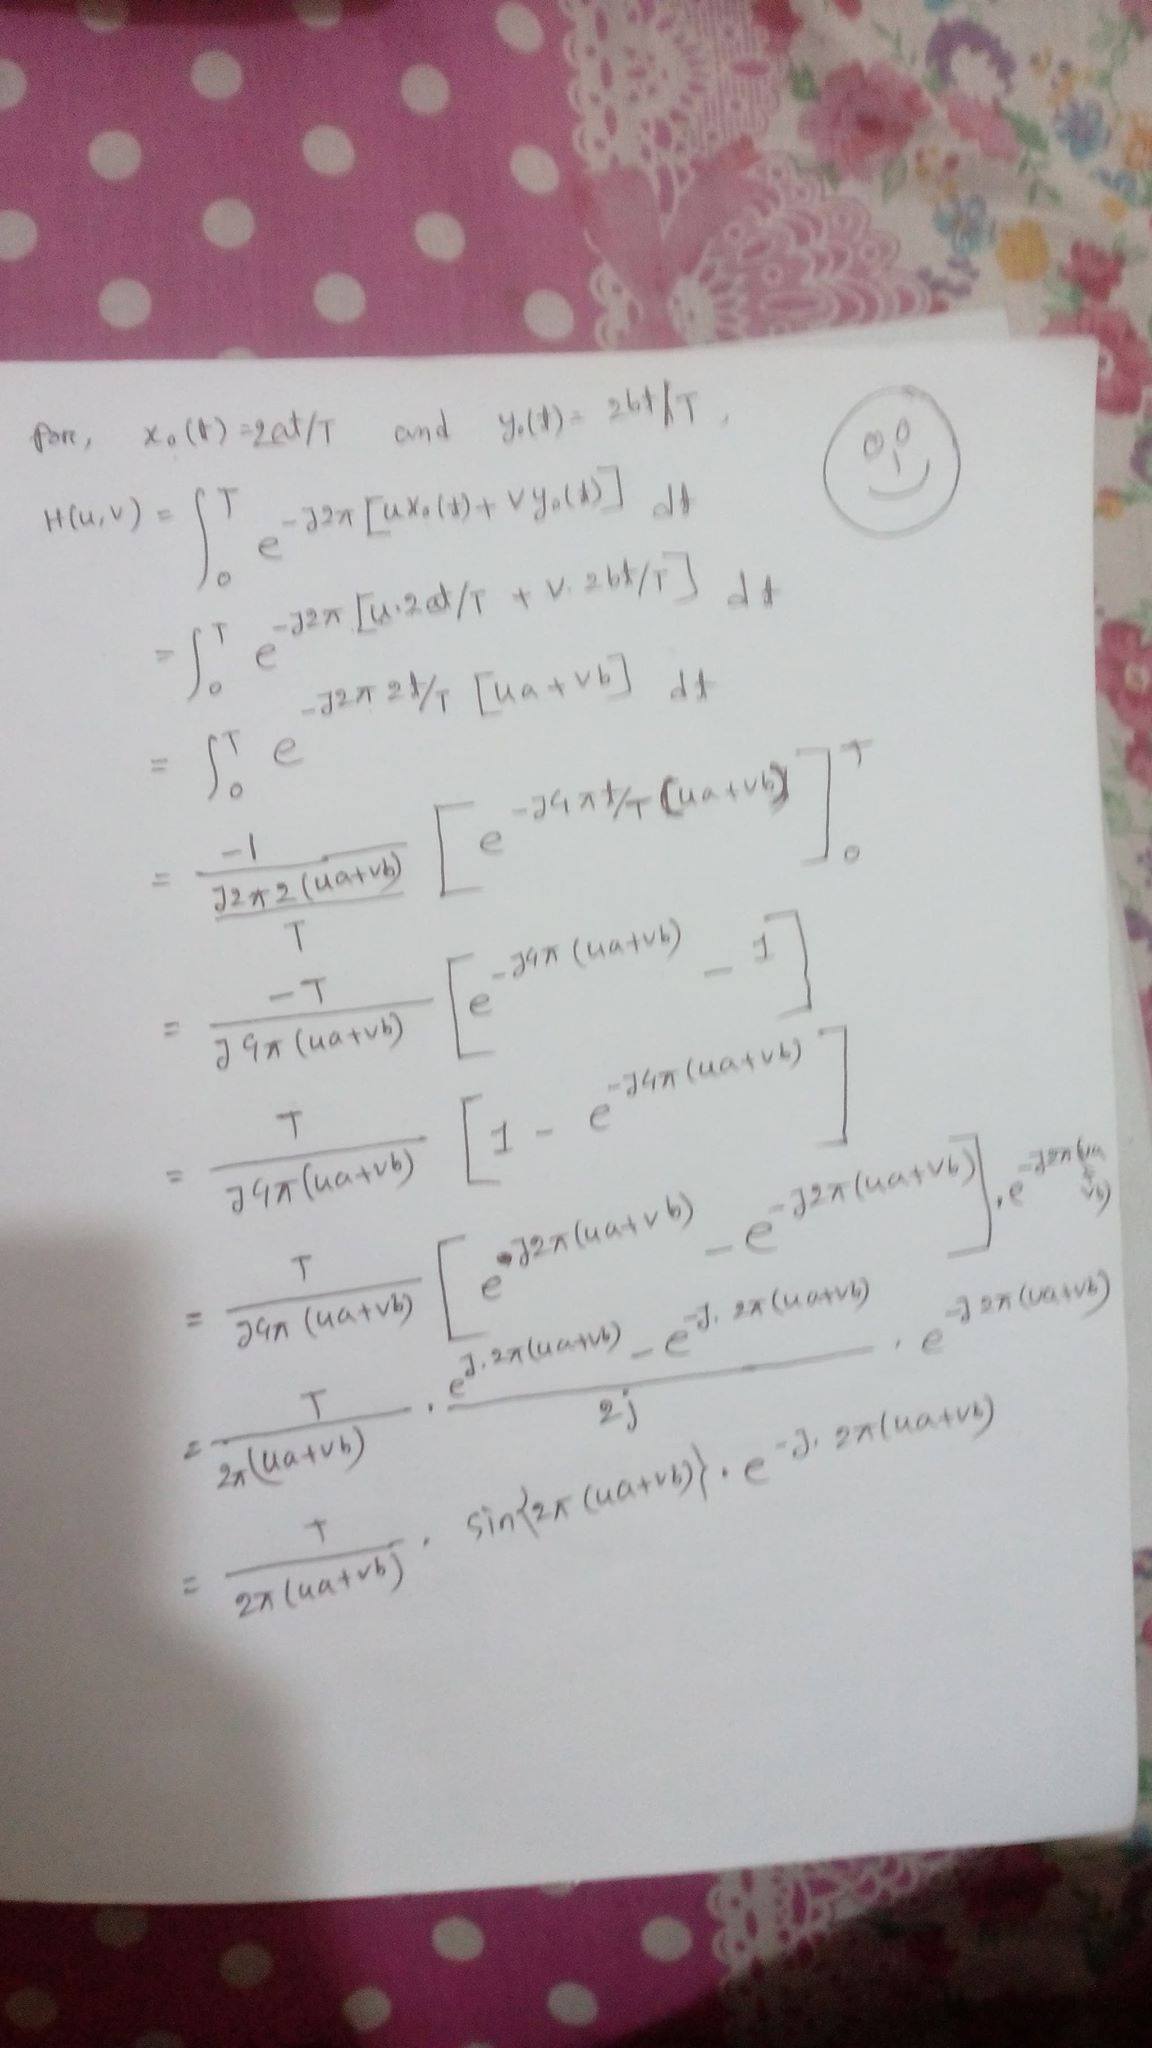 for, x₀(t)=2at/T and y₀(t)= 2bt/T,
H(u,v) = ∫₀ᵀ e^{-j2π[ux₀(t)+vy₀(t)]} dt
= ∫₀ᵀ e^{-j2π[u.2at/T + v.2bt/T]} dt
= ∫₀ᵀ e^{-j2π2t/T [ua+vb]} dt
= -1/(j2π2(ua+vb)/T) [e^{-j4πt/T(ua+vb)}]₀ᵀ
= -T/(j4π(ua+vb)) [e^{-j4π(ua+vb)} - 1]
= T/(j4π(ua+vb)) [1 - e^{-j4π(ua+vb)}]
= T/(j4π(ua+vb)) [e^{j2π(ua+vb)} - e^{-j2π(ua+vb)}].e^{-j2π(ua+vb)}
= T/(2π(ua+vb)) . (e^{j.2π(ua+vb)} - e^{-j.2π(ua+vb)})/2j . e^{-j2π(ua+vb)}
= T/(2π(ua+vb)) . sin{2π(ua+vb)}.e^{-j.2π(ua+vb)}